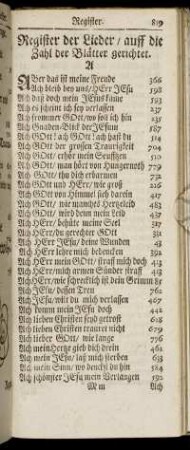 Register. 819
Register der Lieder / auff die
Zahl der Blätter gerichtet.
A
ABer das ist meine Freude 366
Ach bleib bey uns / HErr JEsu 198
Ach daß doch mein JEsus käme 193
Ach es scheint ich sey verlassen 237
Ach frommer GOtt / wo soll ich hin 231
Ach Gnaden-Blick der JEsum 187
Ach GOtt! ach GOtt! ach hast du 514
Ach GOtt der grossen Traurigkeit 704
Ach GOtt / erhör mein Seufftzen 510
Ach GOtt / man höret von Hungersnoth 779
Ach GOtt / thu dich erbarmen 772
Ach GOtt und HErr / wie groß 226
Ach GOtt von Himmel sieh darein 417
Ach GOtt / wie manches Hertzeleid 463
Ach GOtt / wird denn mein Leid 437
Ach HErr / behüte meine Seel 317
Ach HErr / du gerechter GOtt 311
Ach HErr JEsu / deine Wunden 43
Ach HErr lehre mich bedencken 392
Ach HErr mein GOtt / straff mich doch 413
Ach HErr / mich armen Sünder straff 413
Ach HErr / wie schrecklich ist dein Grimm 81
Ach JEsu / dessen Treu 764
Ach JEsu / wilt du mich verlassen 467
Ach komm mein JEsu doch 442
Ach lieben Christen seyd getrost 628
Ach lieben Christen trauret nicht 679
Ach lieber GOtt / wie lange 776
Ach mein Hertze gieb dich drein 461
Ach mein JEsu / laß mich sterben 653
Ach mein Sams / wo denckst du hin 504
Ach schönster JEsu mein Verlangen 192
M m Ach